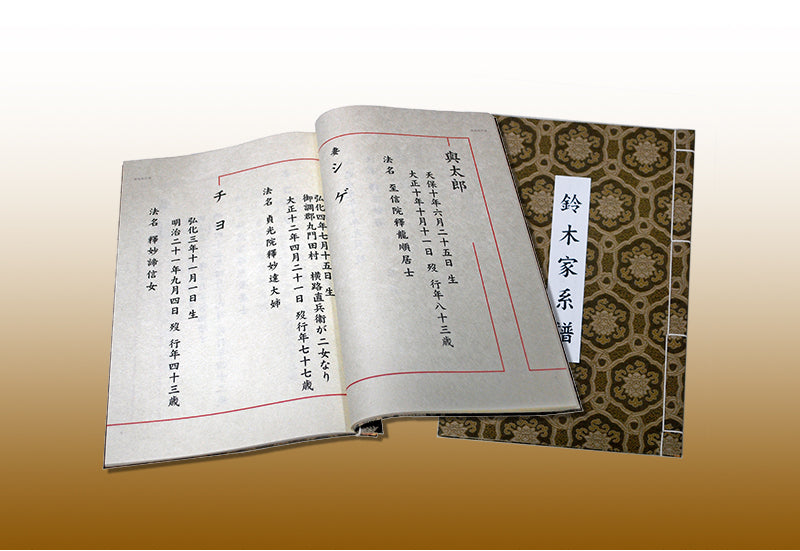 鈴木家系譜
與太郎
天保十年六月二十五日 生
大正十年十月十一日 歿 行年八十三歳
法名 至信院釋龍順居士
妻 シゲ
弘化四年七月十五日 生
御調郡丸門田村 横路直兵衛が二女なり
大正十二年四月二十一日 歿 行年七十七歳
法名 貞光院釋妙達大姉
チヨ
弘化三年十一月一日 生
明治二十一年九月四日 歿 行年四十三歳
法名 釋妙諦信女